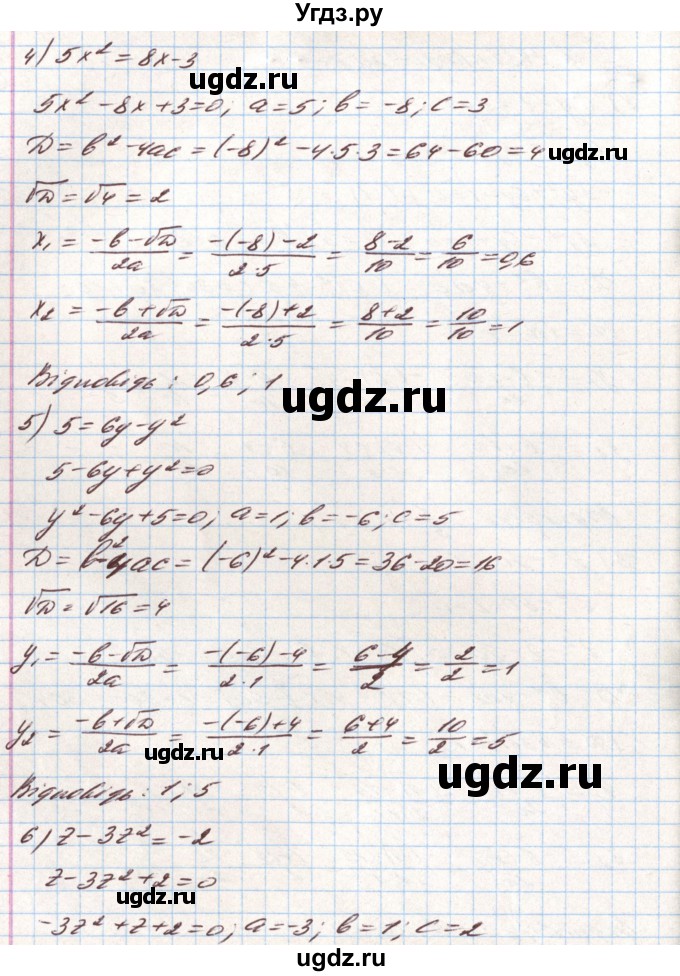 Угдз.ру
4) 5x² = 8x-3
ugdz.ru
5x² - 8x + 3 = 0; a = 5; b = -8; c = 3
D = b² - 4ac = (-8)² - 4·5·3 = 64 - 60 = 4
ugdz.ru
√D = √4 = 2
x₁ = (-b-√D)/2a = (-(-8)-2)/2·5 = (8-2)/10 = 6/10 = 0,6
x₂ = (-b+√D)/2a = (-(-8)+2)/2·5 = (8+2)/10 = 10/10 = 1
Відповідь: 0,6; 1
ugdz.ru
5) 5 = 6y - y²
5 - 6y + y² = 0
ugdz.ru
y² - 6y + 5 = 0; a = 1; b = -6; c = 5
D = b² - 4ac = (-6)² - 4·1·5 = 36 - 20 = 16
√D = √16 = 4
ugdz.ru
y₁ = (-b-√D)/2a = (-(-6)-4)/2·1 = (6-4)/2 = 2/2 = 1
y₂ = (-b+√D)/2a = (-(-6)+4)/2·1 = (6+4)/2 = 10/2 = 5
ugdz.ru
ugdz.ru
Відповідь: 1; 5
6) z - 3z² = -2
z - 3z² + 2 = 0
ugdz.ru
-3z² + z + 2 = 0; a = -3; b = 1; c = 2
ugdz.ru